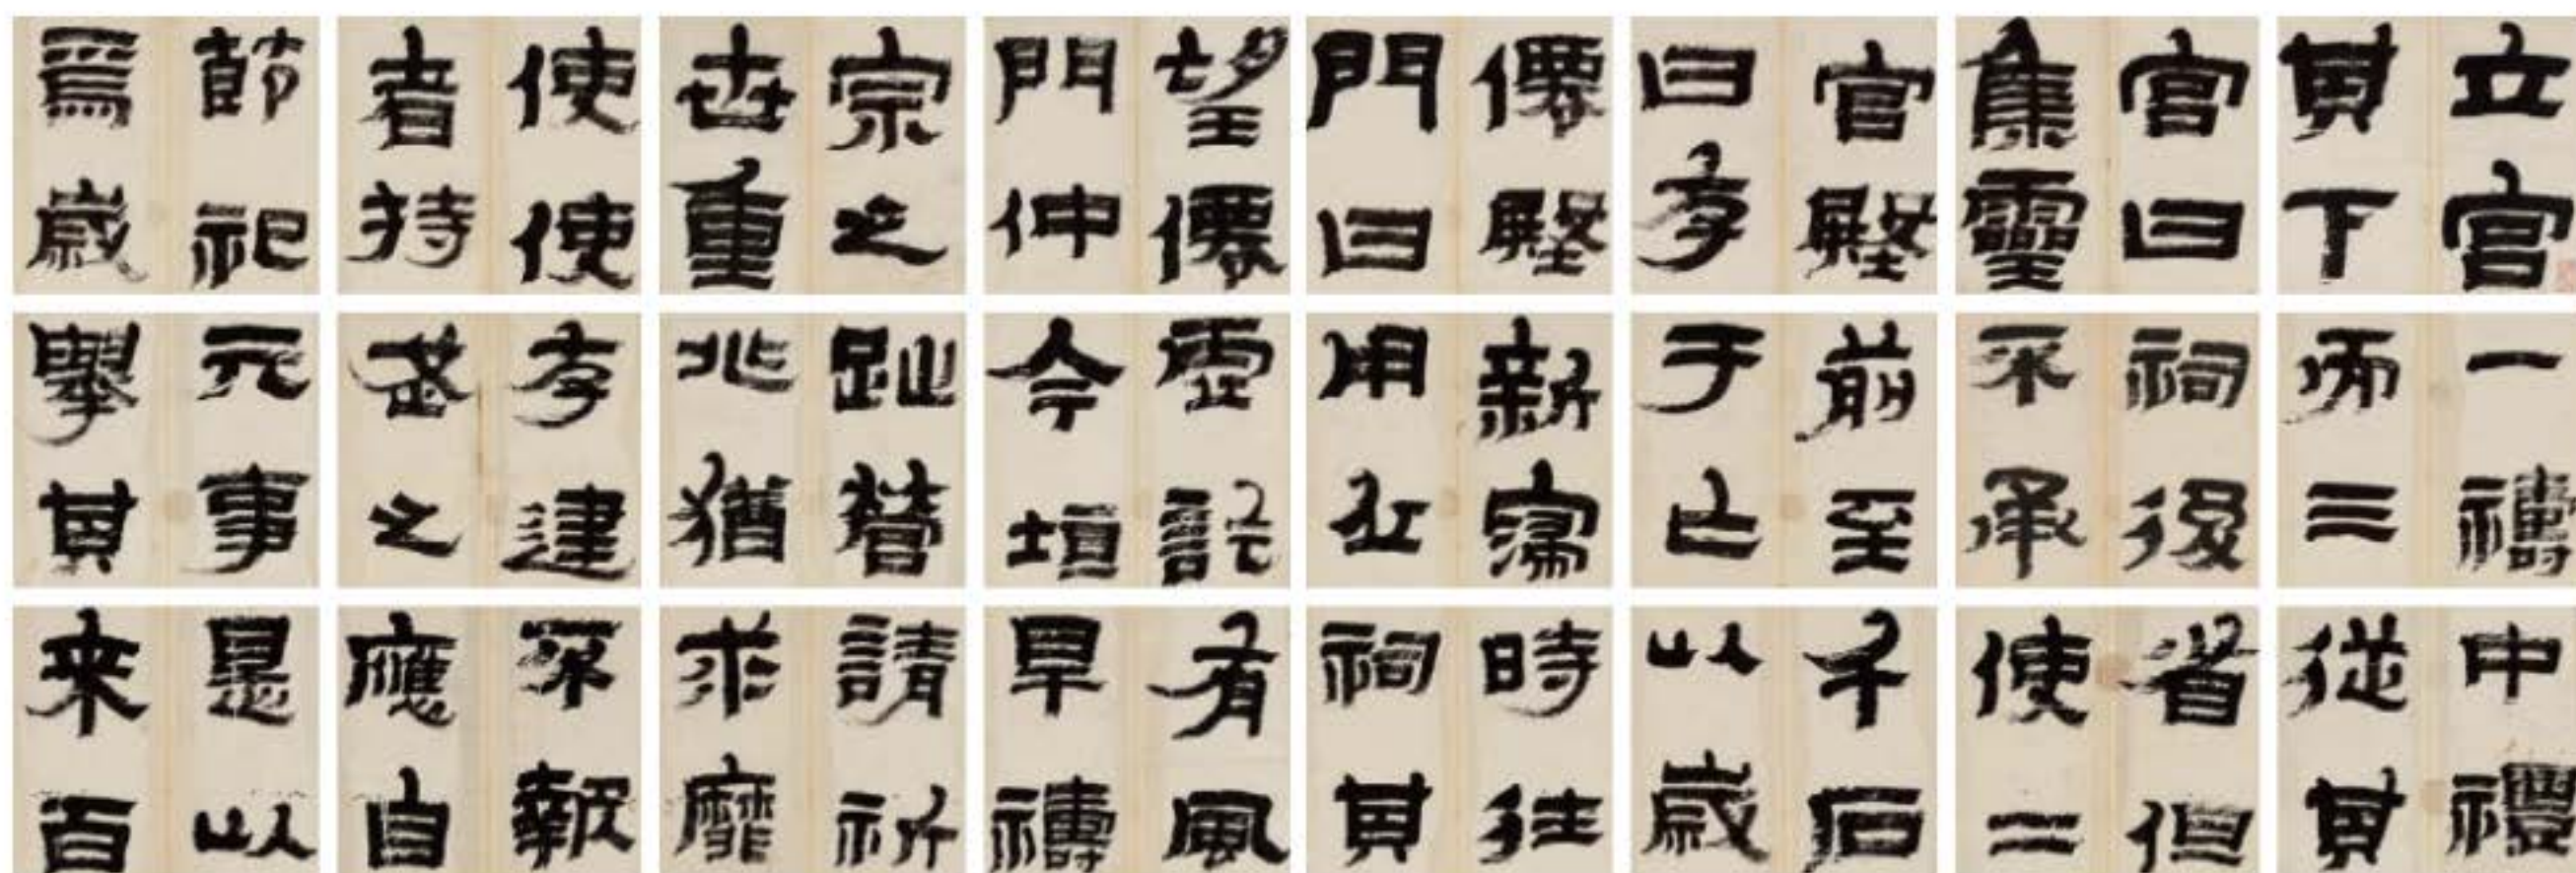 立宮
其下
宮曰
集靈
宮殿
曰存
僊殿
門曰
望僊
門仲
宗之
世重
使使
者持
節祀
焉歲
一禱
而三
祠後
不承
前至
于亡
新寖
用丘
虛訖
今垣
趾營
兆猶
存建
武之
元事
舉其
中禮
從其
省但
使二
千石
以歲
時往
祠其
有風
旱禱
請祈
求靡
不報
應自
是以
来百